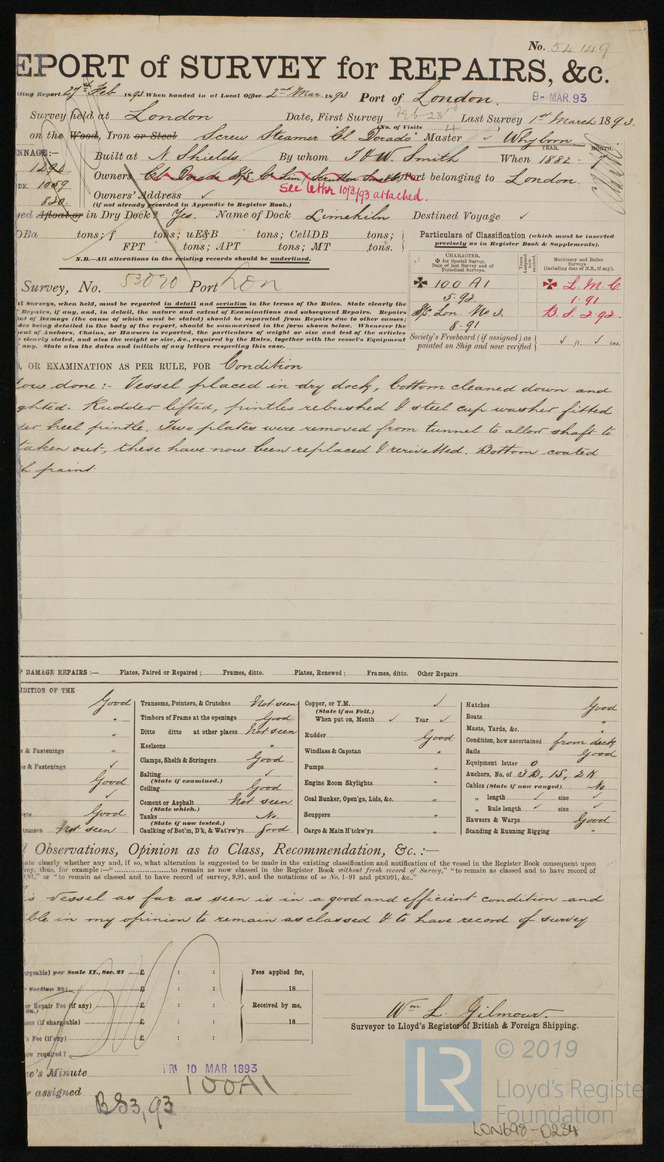 No. 54149
EPORT of SURVEY for REPAIRS, &c.
ting Report 27th Feb 1893 When handed in at Local Office 2nd Mar 1893 Port of London.
8- MAR. 93
Survey held at London Date, First Survey Feb 23rd Last Survey 1st March 1893.
(No. of Visits 4)
on the Wood, Iron or Steel Screw Steamer "El Dorado" Master Whyborn
NNAGE:—
1290
1059
820
Built at N. Shields By whom T & W. Smith When 1882 - 7
YEAR. MONTH.
Owners Port belonging to London
See letter 10/3/93 attached.
Owners' Address
(If not already recorded in Appendix to Register Book.)
yed Afloat or in Dry Dock? Yes. Name of Dock Limekiln Destined Voyage
DBa tons; f tons; uE&B tons; CellDB tons;
FPT tons; APT tons; MT tons.
N.B.—All alterations in the existing records should be underlined.
Particulars of Classification (which must be inserted precisely as in Register Book & Supplements).
CHARACTER.
for Special Survey.
Date of last Survey and of Periodical Surveys.
Years Assigned now expired.
Machinery and Boiler Surveys (including date of N.B., if any).
✠ 100 A1
5.92
S/S. Lon No 2.
8.91
✠ L.M.C.
1.91
B.S 2.92.
Society's Freeboard (if assigned) as painted on Ship and now verified ft. ins.
Survey, No. 53090 Port Lon
al Surveys, when held, must be reported in detail and seriatim in the terms of the Rules. State clearly the
Repairs, if any, and, in detail, the nature and extent of Examinations and subsequent Repairs. Repairs
nt of Damage (the cause of which must be stated) should be separated from Repairs due to other causes;
des being detailed in the body of the report, should be summarised in the form shown below. Whenever the
ent of Anchors, Chains, or Hawsers is reported, the particulars of weight or size and test of the articles
clearly stated, and also the weight or size, &c., required by the Rules, together with the vessel's Equipment
any. State also the dates and initials of any letters respecting this case.
, OR EXAMINATION AS PER RULE, FOR Condition
low done:- Vessel placed in dry dock, bottom cleaned down and
ghted. Rudder lifted, pintles rebushed & steel cup washer fitted
der heel pintle. Two plates were removed from tunnel to allow shaft to
taken out, these have now been replaced & reriveted. Bottom coated
h paint
DAMAGE REPAIRS:— Plates, Faired or Repaired; Frames, ditto. Plates, Renewed; Frames, ditto. Other Repairs
NDITION OF THE
Good
"
"
s & Fastenings "
s & Fastenings
Good
Good
Not seen
Transoms, Pointers, & Crutches Not seen
Timbers of Frame at the openings Good
Ditto ditto at other places Not seen
Keelsons "
Clamps, Shelfs & Stringers Good
Salting
(State if examined.)
Ceiling Good
Cement or Asphalt Not seen
(State which.)
Tanks No.
(State if now tested.)
Caulking of Bot'm, D'k, & Wat'rw'ys Good
Copper, or Y.M.
(State if on Felt.)
When put on, Month Year
Rudder Good
Windlass & Capstan "
Pumps "
Engine Room Skylights "
Coal Bunker, Open'gs, Lids, &c. "
Scuppers "
Cargo & Main H'tchw'ys "
Hatches Good
Boats "
Masts, Yards, &c. "
Condition, how ascertained from deck
Sails Good
Equipment letter
Anchors, No. of 3B, 1S, 2K
Cables (State if now ranged). No
" length size
" Rule length size
Hawsers & Warps Good
Standing & Running Rigging "
l Observations, Opinion as to Class, Recommendation, &c.:—
ate clearly whether any and, if so, what alteration is suggested to be made in the existing classification and notification of the vessel in the Register Book consequent upon
vey, thus, for example:—"..................to remain as now classed in the Register Book without fresh record of Survey," "to remain as classed and to have record of
9,91," or "to remain as classed and to have record of survey, 9,91, and the notations of ss No. 1-91 and ptND91, &c.,"
is Vessel as far as seen is in a good and efficient condition and
ible in my opinion to remain as classed & to have record of survey
rgeable) per Scale II., Sec. 27 £ : :
Section 28) £ : :
or Repair Fee (if any) £ : :
nces (if chargeable) £ : :
's Fee (if any) £ : :
ow required?
Fees applied for,
18
Received by me,
18
Wm L. Gilmour.
Surveyor to Lloyd's Register of British & Foreign Shipping.
ee's Minute FRI 10 MAR 1893
r assigned 100A1
BS3,93
LR
© 2019
Lloyd's Register
Foundation
LON698-0234